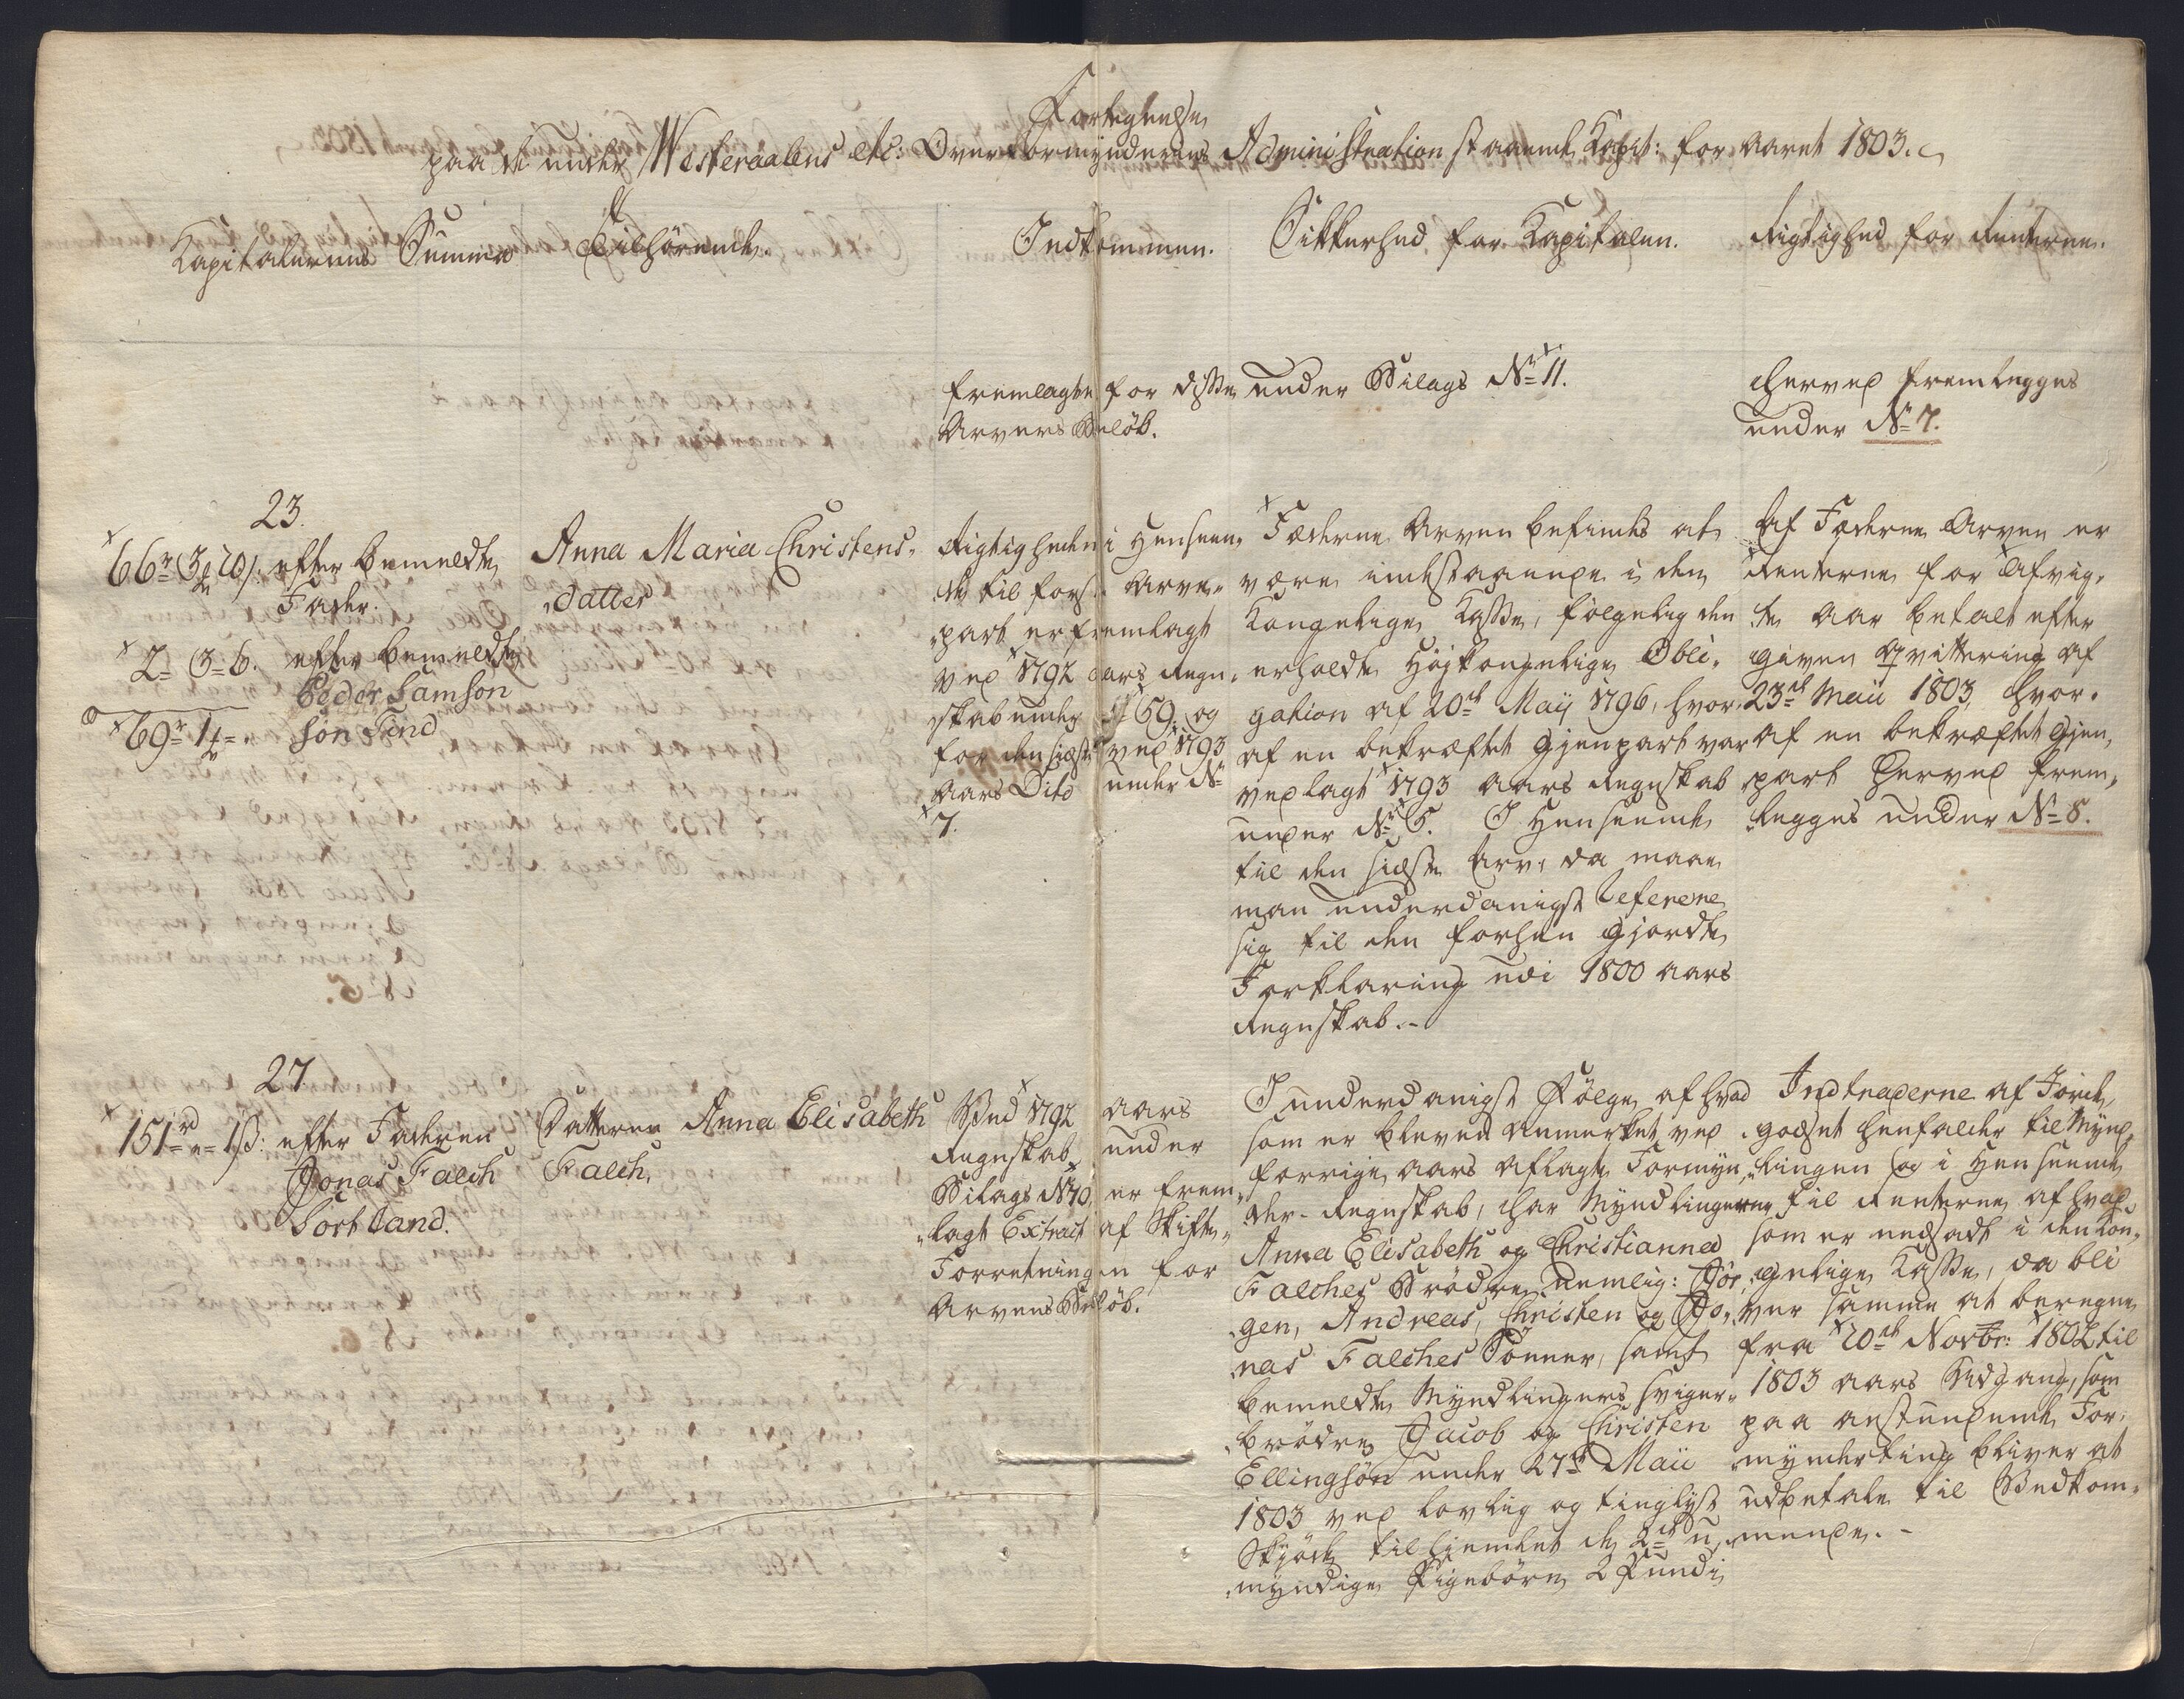 Fortegnelse
paa de under Westeraalens etc: Overformynderens Administration staaende Kapit: for Aaret 1803.
Kapitalernes Summa
Tilhørende.
Indkommen.
Sikkerhed for Kapitalen.
Rigtighed for Renterne.
fremlagte for disse
Arvers Beløb.
under Bilags No 11.
herved fremlegges
under No 7.
23.
66 r 3 20 s: efter bemeldte
Fader.
2 - 3 - 6. efter bemeldte
Peder Samson
69 r 1 - " søn Tind
Anna Maria Christens,
datter
Rigtigheden i Henseen,
de til først Arve,
part er fremlagt
ved 1792 Aars Regn,
skab under No 59. og
for den sidste ved 1793
Aars Dito under No
7.
Fæderne Arven befindes at
være indestaaende i den
Kongelige Kasse, følgelig den
erholdte Høykongelige Obli,
gation af 20de Maij 1796, hvor,
af en bekræftet Gjenpart var
vedlagt 1793 Aars Regnskab
under No 5. I Henseende
til den sidste Arv, da maae
man underdanigst referere
sig til den forhen gjordte
Forklaring udi 1800 Aars
Regnskab. -
Af Fæderne Arven er
Renterne for Afvig,
te Aar betalt efter
given Qvittering af
23de Maii 1803, hvor,
af en bekræftet Gjen,
part herved frem,
legges under No 8.
27
151 rd " 1 s: efter Faderen
Jonas Falch
Sortland.
Datteren Anna Elisabeth
Falch,
Ved 1792 Aars
Regnskab under
Bilags No 70, er frem,
lagt Extract af Skifte,
Forretningen for
Arvens Beløb.
I underdanigst Følge af hvad
som er bleven anmerket ved
forrige Aars aflagte Formyn,
der-Regnskab, har Myndlingerne
Anna Elisabeth og Christianna
Falches Brødre, nemlig: Jør,
gen, Andreas, Christen og Jo,
nas Falches Sønner, samt
bemeldte Myndlingers Sviger,
brødre Jacob og Christen
Ellingsøn under 27de Maii
1803 ved lovlig og tinglyst
Skjøde tilhiemlet de 2de u,
myndige Pigebørn 2 Pund i
Indtraderne af Jorde,
godset henfalder til Mynd,
lingen og i Henseende
til Renterne af hvad
som er nedsadt i den Kon,
gelige Kasse, da bli
ver samme at beregne
fra 20de Novbr: 1802 til
1803 Aars Udgang, som
paa anstundende For,
mynderting bliver at
udbetale til Vedkom,
mende. -